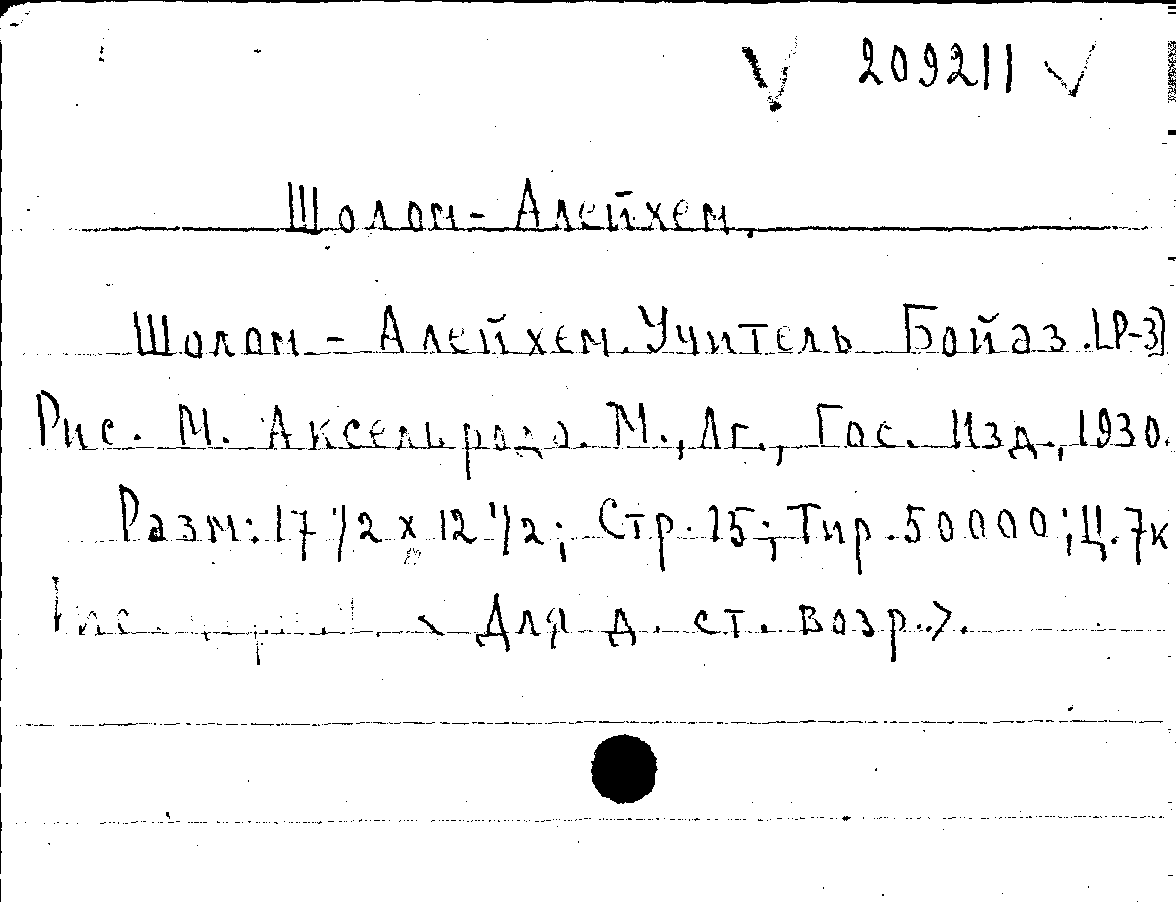 209211
Шолом-Алейхем.
Шолом-Алейхем. Учитель Бойаз. [Р-з]
Рис. М. Аксельрода. М., Лг., Гос. Изд., 1930.
Разм: 17 1/2 х 12 1/2; Стр. 15; Тир. 50000; Ц. 7к
<Для д. ст. возр.>.